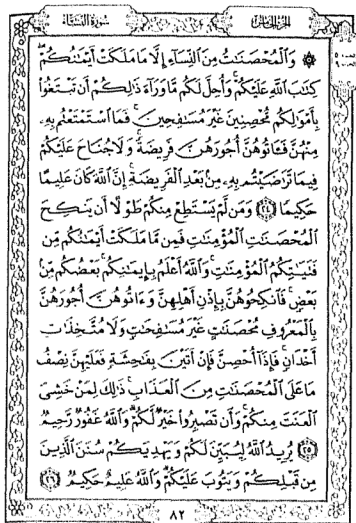 سورة النساء الجزء الخامس
۞ وَالْمُحْصَنَاتُ مِنَ النِّسَاءِ إِلَّا مَا مَلَكَتْ أَيْمَانُكُمْ
كِتَابَ اللَّهِ عَلَيْكُمْ وَأُحِلَّ لَكُم مَّا وَرَاءَ ذَٰلِكُمْ أَن تَبْتَغُوا
بِأَمْوَالِكُم مُّحْصِنِينَ غَيْرَ مُسَافِحِينَ فَمَا اسْتَمْتَعْتُم بِهِ
مِنْهُنَّ فَآتُوهُنَّ أُجُورَهُنَّ فَرِيضَةً وَلَا جُنَاحَ عَلَيْكُمْ
فِيمَا تَرَاضَيْتُم بِهِ مِن بَعْدِ الْفَرِيضَةِ إِنَّ اللَّهَ كَانَ عَلِيمًا
حَكِيمًا ٢٤ وَمَن لَّمْ يَسْتَطِعْ مِنكُمْ طَوْلًا أَن يَنكِحَ
الْمُحْصَنَاتِ الْمُؤْمِنَاتِ فَمِن مَّا مَلَكَتْ أَيْمَانُكُم مِّن
فَتَيَاتِكُمُ الْمُؤْمِنَاتِ وَاللَّهُ أَعْلَمُ بِإِيمَانِكُم بَعْضُكُم مِّن
بَعْضٍ فَانكِحُوهُنَّ بِإِذْنِ أَهْلِهِنَّ وَآتُوهُنَّ أُجُورَهُنَّ
بِالْمَعْرُوفِ مُحْصَنَاتٍ غَيْرَ مُسَافِحَاتٍ وَلَا مُتَّخِذَاتِ
أَخْدَانٍ فَإِذَا أُحْصِنَّ فَإِنْ أَتَيْنَ بِفَاحِشَةٍ فَعَلَيْهِنَّ نِصْفُ
مَا عَلَى الْمُحْصَنَاتِ مِنَ الْعَذَابِ ذَٰلِكَ لِمَنْ خَشِيَ
الْعَنَتَ مِنكُمْ وَأَن تَصْبِرُوا خَيْرٌ لَّكُمْ وَاللَّهُ غَفُورٌ رَّحِيمٌ
٢٥ يُرِيدُ اللَّهُ لِيُبَيِّنَ لَكُمْ وَيَهْدِيَكُمْ سُنَنَ الَّذِينَ
مِن قَبْلِكُمْ وَيَتُوبَ عَلَيْكُمْ وَاللَّهُ عَلِيمٌ حَكِيمٌ ٢٦
٨٢